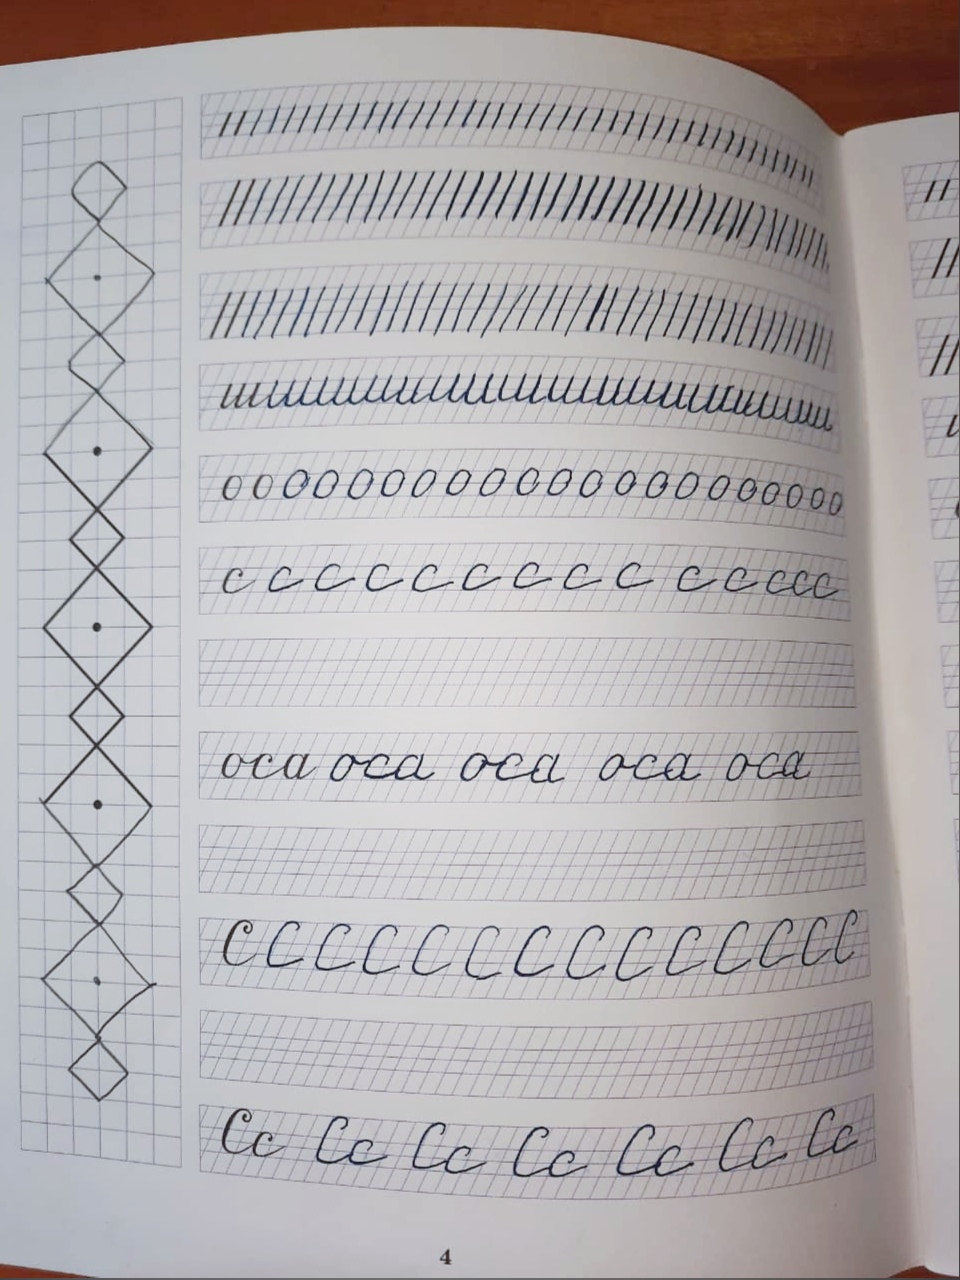 о о о о о о о о о о о о о о о о о о о о о
с с с с с с с с с с с с с с
оса оса оса оса оса
С С С С С С С С С С С С С С
Сс Сс Сс Сс Сс Сс Сс
4